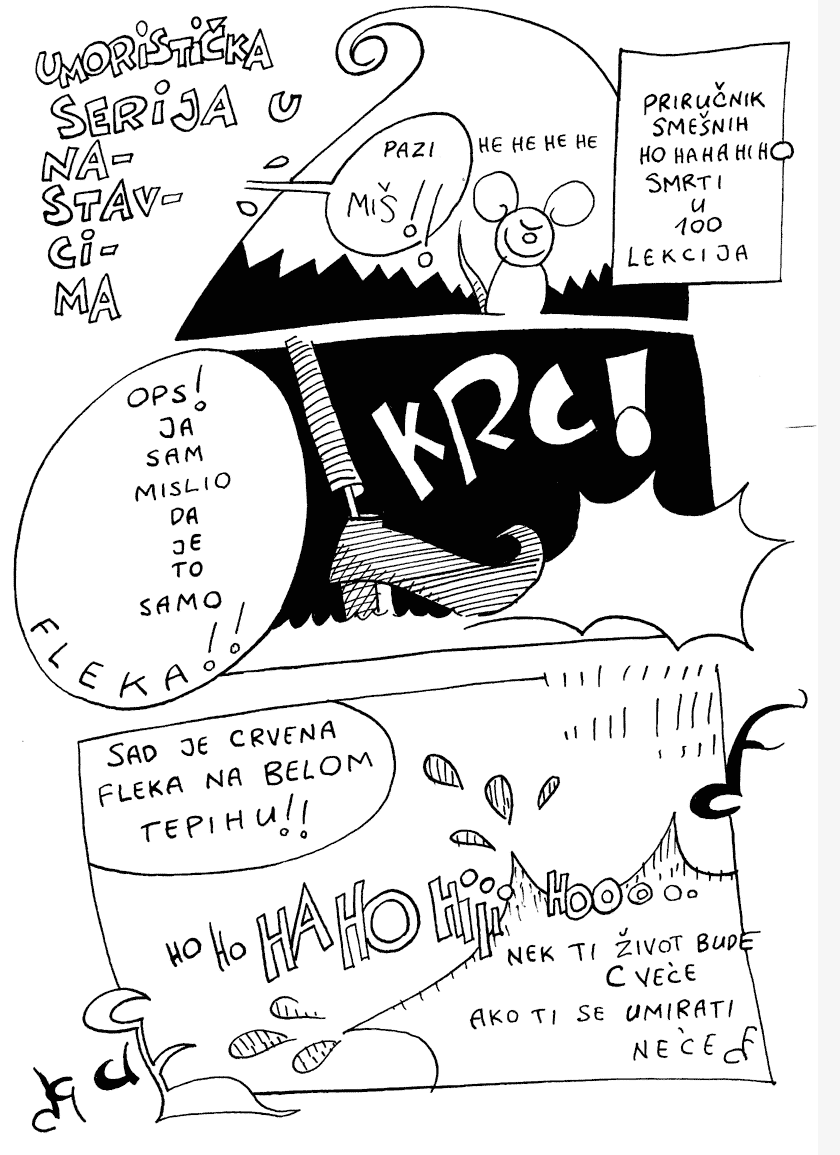 UMORISTIČKA
SERIJA U
NA-
STAV-
CI-
MA
PRIRUČNIK
SMEŠNIH
HO HAHA HI HO
SMRTI
U
100
LEKCIJA
PAZI
MIŠ!!
HE HE HE HE
OPS!
JA
SAM
MISLIO
DA
JE
TO
SAMO
FLEKA!!
KRC!
SAD JE CRVENA
FLEKA NA BELOM
TEPIHU!!
HO HO HA HO Hiiii HOOOOOO
NEK TI ŽIVOT BUDE
CVEĆE
AKO TI SE UMIRATI
NEĆE